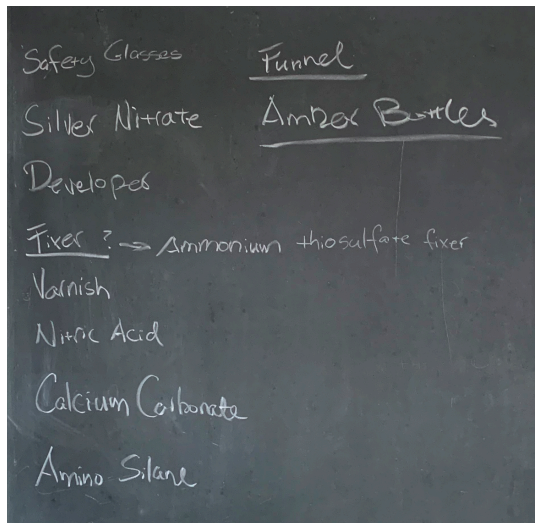 Safety Glasses
Silver Nitrate
Developer
Fixer ? → Ammonium thiosulfate fixer
Varnish
Nitric Acid
Calcium Carbonate
Amino Silane
Funnel
Amber Bottles